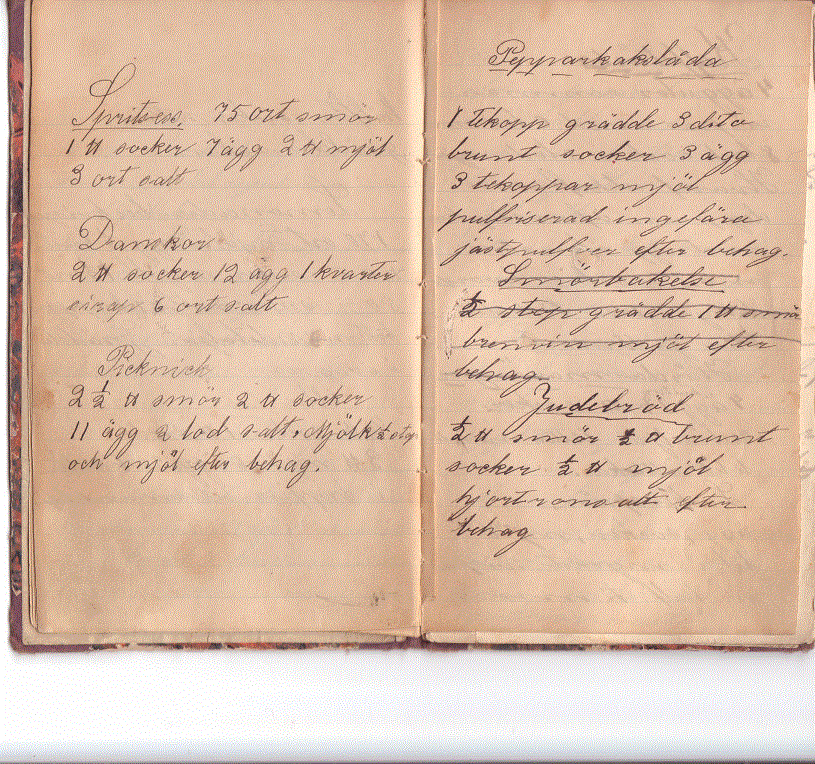 Spritsess. 75 ort smör
1 ℔ socker 7 ägg 2 ℔ mjöl
3 ort salt
Danskor
2 ℔ socker 12 ägg 1 kvarter
sirap 6 ort salt
Picknick
2 1/2 ℔ smör 2 ℔ socker
11 ägg 2 lod salt. Mjölk 1/2 stop
och mjöl efter behag.
Pepparkakslåda
1 tekopp grädde 3 dito
brunt socker 3 ägg
3 tekoppar mjöl
pulfriserad ingefära
jästpulfver efter behag.
Smörbakelse
1/2 stop grädde 1 ℔ smör
brenvin mjöl efter
behag
Judebröd
1/2 ℔ smör 1/2 ℔ brunt
socker 1/2 ℔ mjöl
hjortronsalt efter
behag